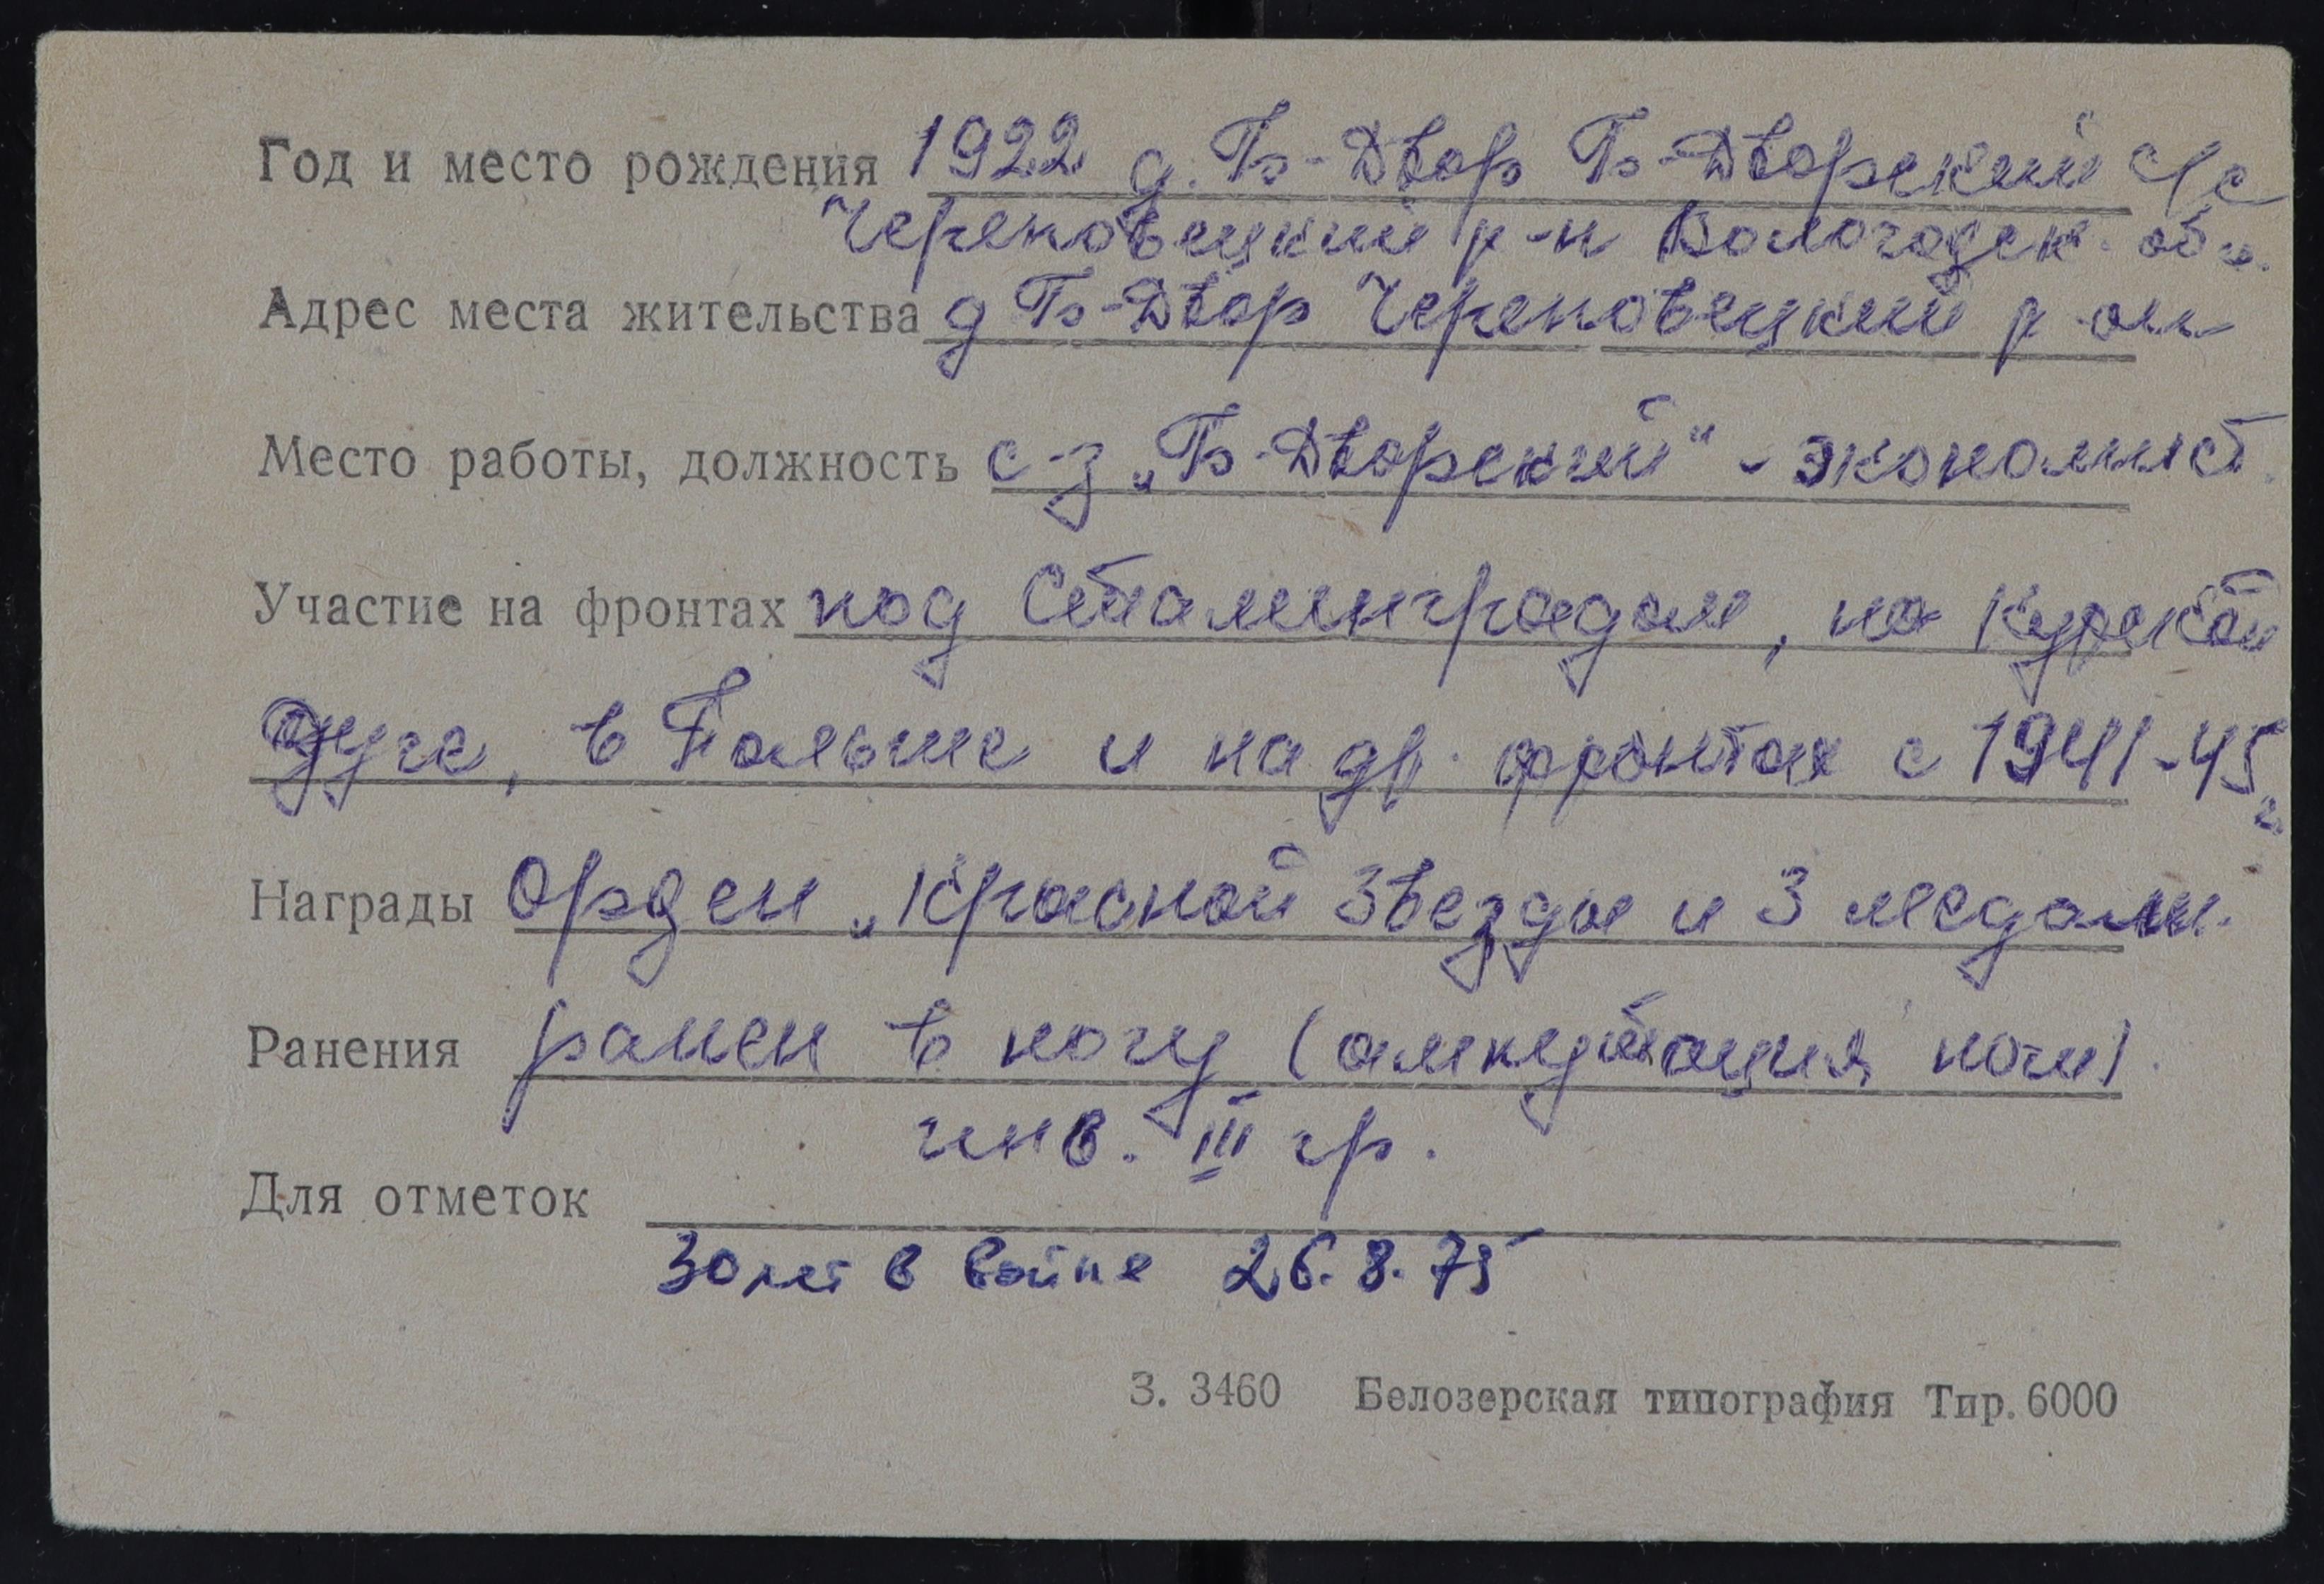 Год и место рождения 1922 д. Б-Двор Б-Дворский с/с
Череповецкий р-н Вологодск. обл.
Адрес места жительства д Б-Двор Череповецкий р-он
Место работы, должность с-з „Б-Дворский“ - экономист.
Участие на фронтах под Сталинградом, на Курской
дуге, в Польше и на др. фронтах с 1941-45 г.
Награды Орден „Красной Звезды и 3 медали.
Ранения ранен в ногу (ампутация ноги)
инв. III гр.
Для отметок
30 лет в войне 26.8.75
З. 3460 Белозерская типография Тир. 6000